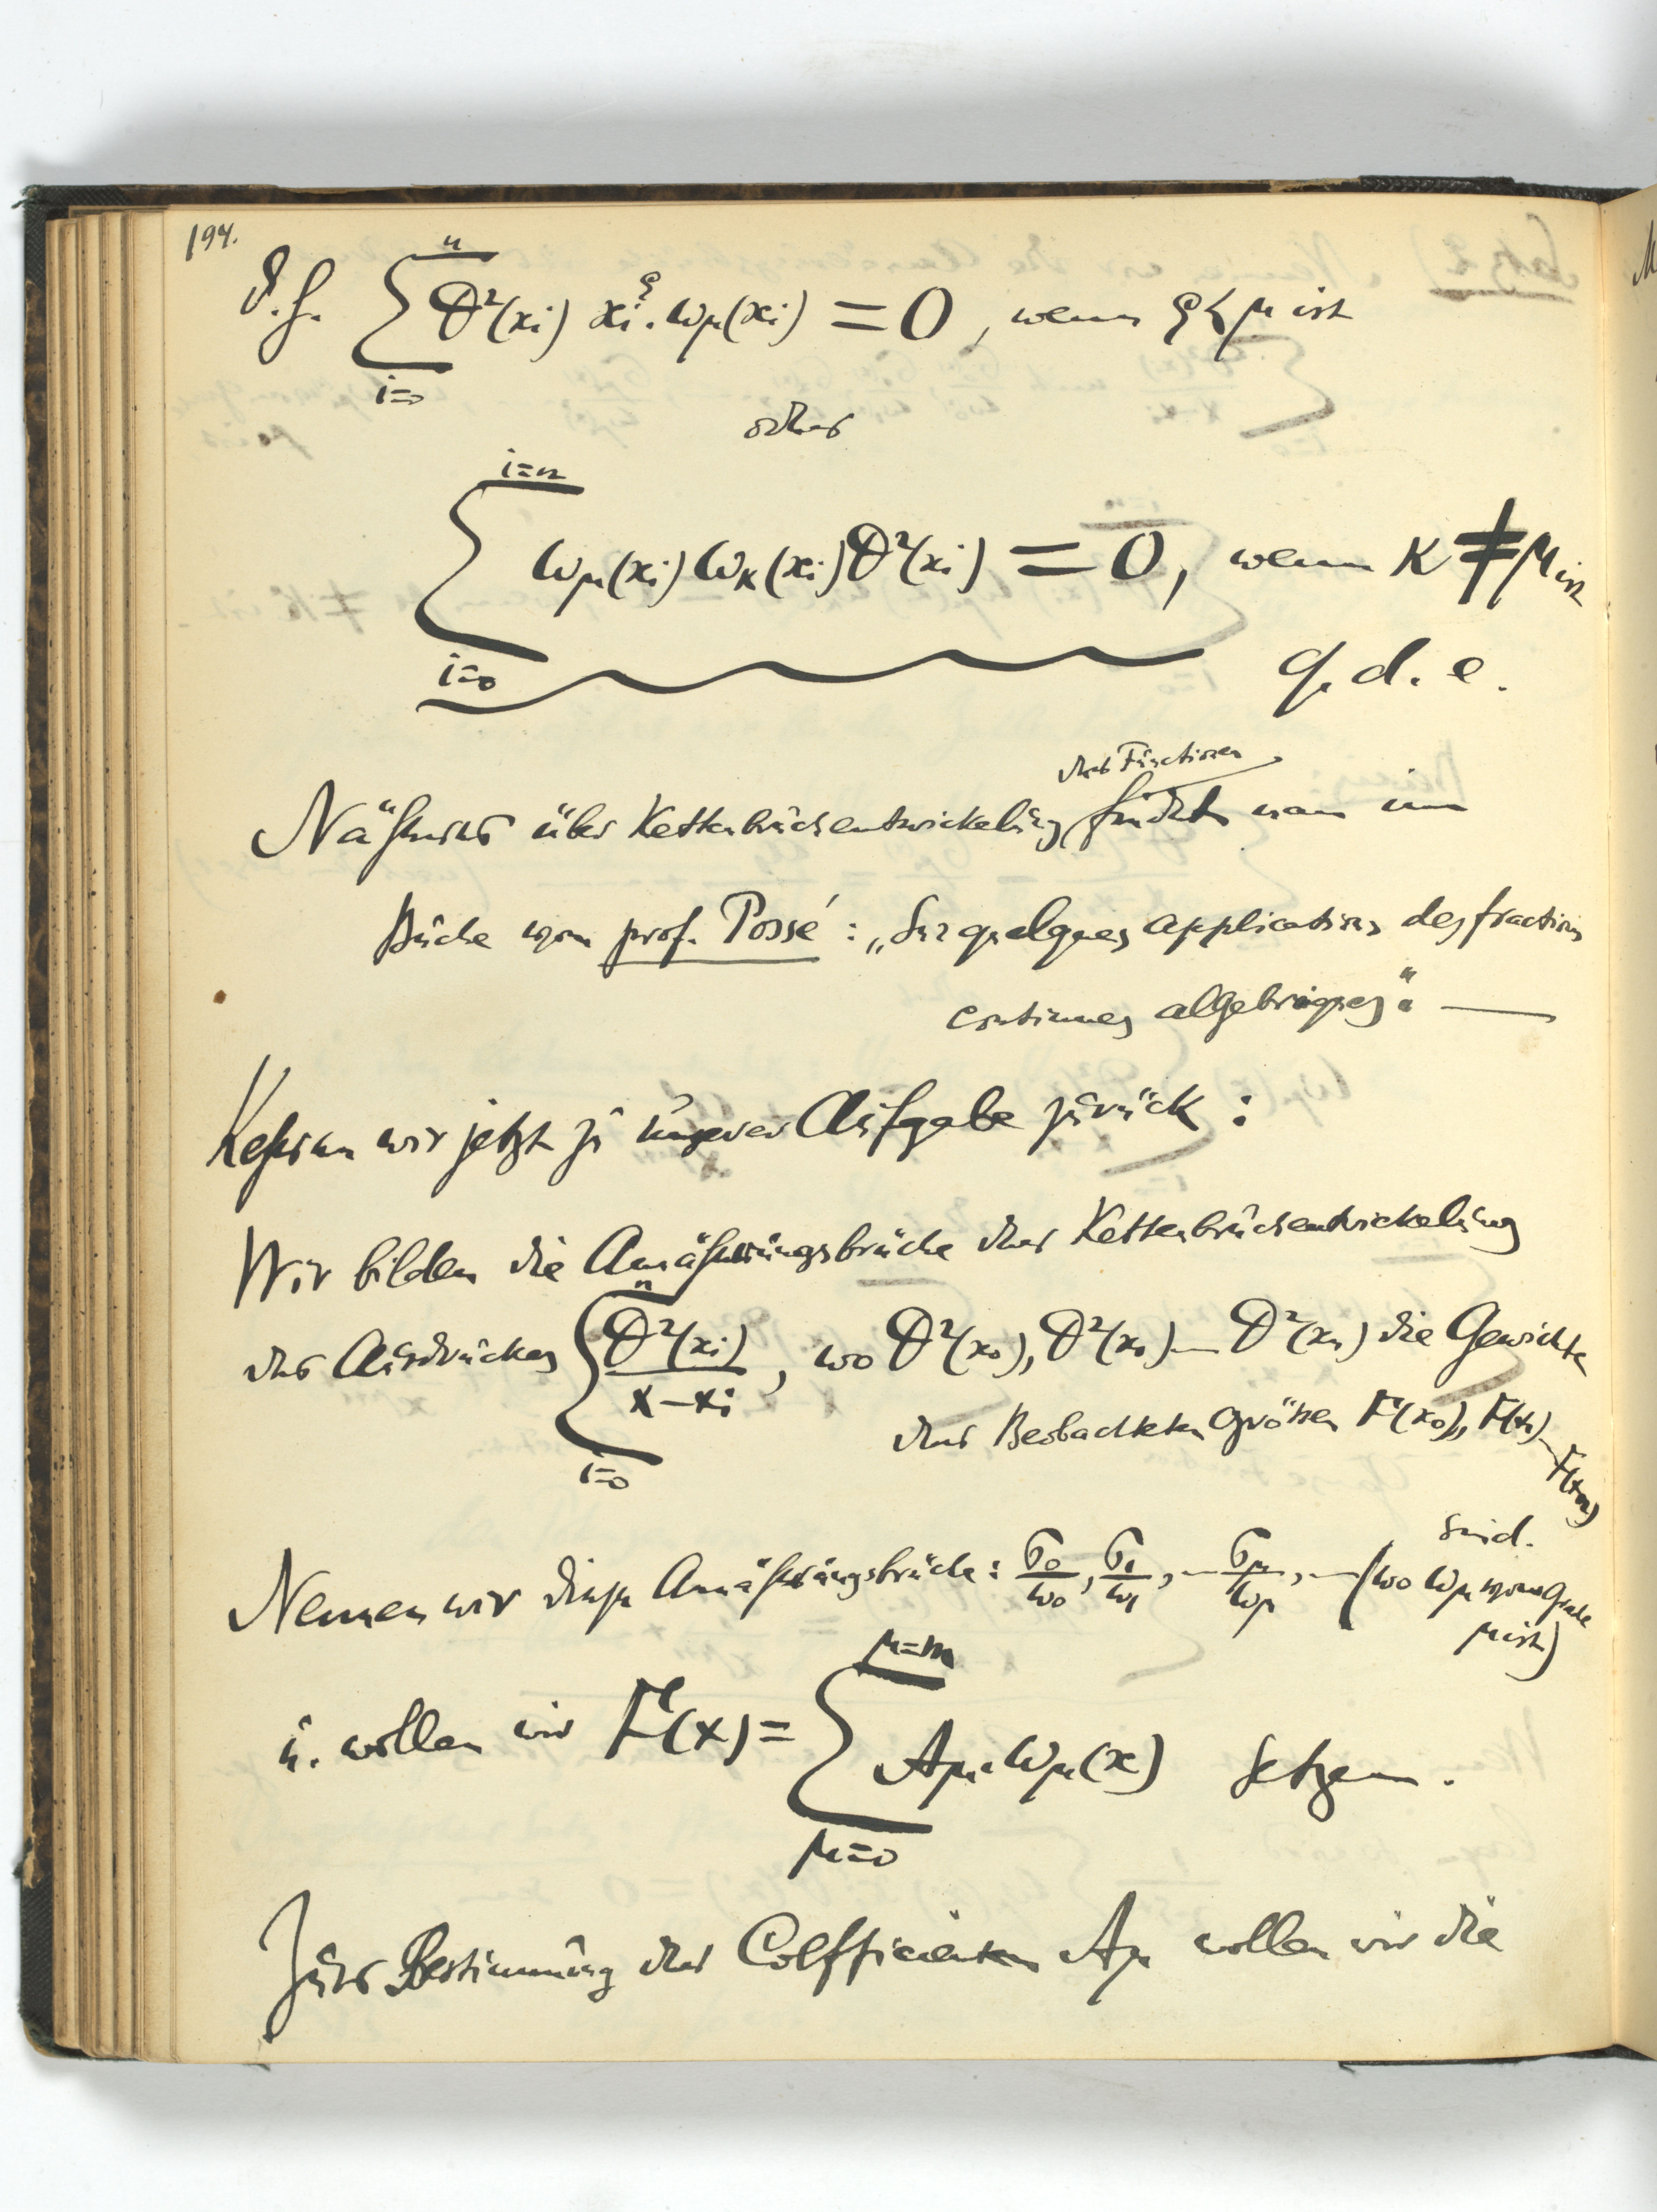 194.
d.h. $\sum_{i=0}^{n} \vartheta^2(x_i)\, x_i^{\varrho} \cdot \omega_\mu(x_i) = 0$, wenn $\varrho < \mu$ ist
oder
$\sum_{i=0}^{i=n} \omega_\mu(x_i) \omega_K(x_i) \vartheta^2(x_i) = 0$, wenn $K \neq \mu$ ist
q. d. e.
der Functionen
Näheres über Kettenbruchentwickelung findet man im
Buche von prof. Possé: „Sur quelques applications des fractions
continues algebriques“. —
Kehren wir jetzt zu unserer Aufgabe zurück:
Wir bilden die Annäherungsbrüche der Kettenbruchentwickelung
des Ausdruckes $\sum_{i=0}^{n} \frac{\vartheta^2(x_i)}{x - x_i}$, wo $\vartheta^2(x_0), \vartheta^2(x_1) — \vartheta^2(x_n)$ die Gewichte
der Beobachteten Größen $F(x_0), F(x_1) — F(x_n)$
sind.
Nennen wir diese Annäherungsbrüche: $\frac{\sigma_0}{\omega_0}, \frac{\sigma_1}{\omega_1}, — \frac{\sigma_\mu}{\omega_\mu}, —$ (wo $\omega_\mu$ vom Grade
$\mu$ ist)
u. wollen wir $F(x) = \sum_{\mu=0}^{\mu=m} A_\mu \cdot \omega_\mu(x)$ setzen.
Zur Bestimmung der Coefficienten $A_\mu$ wollen wir die